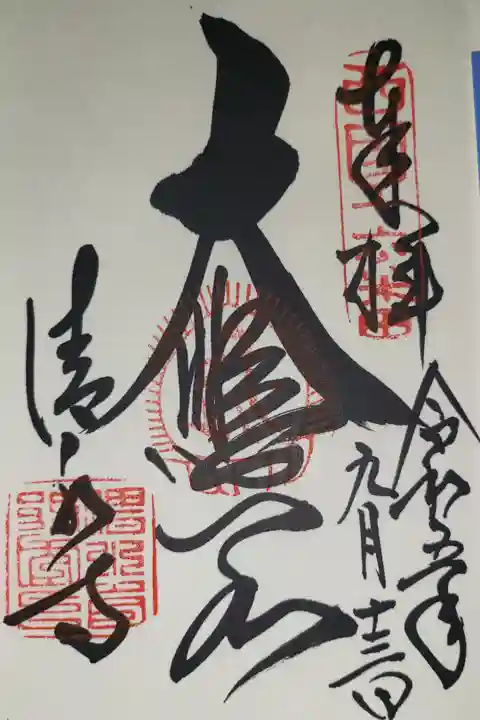 奉拝
令和五年
九月十三日
大悲閣
清水寺